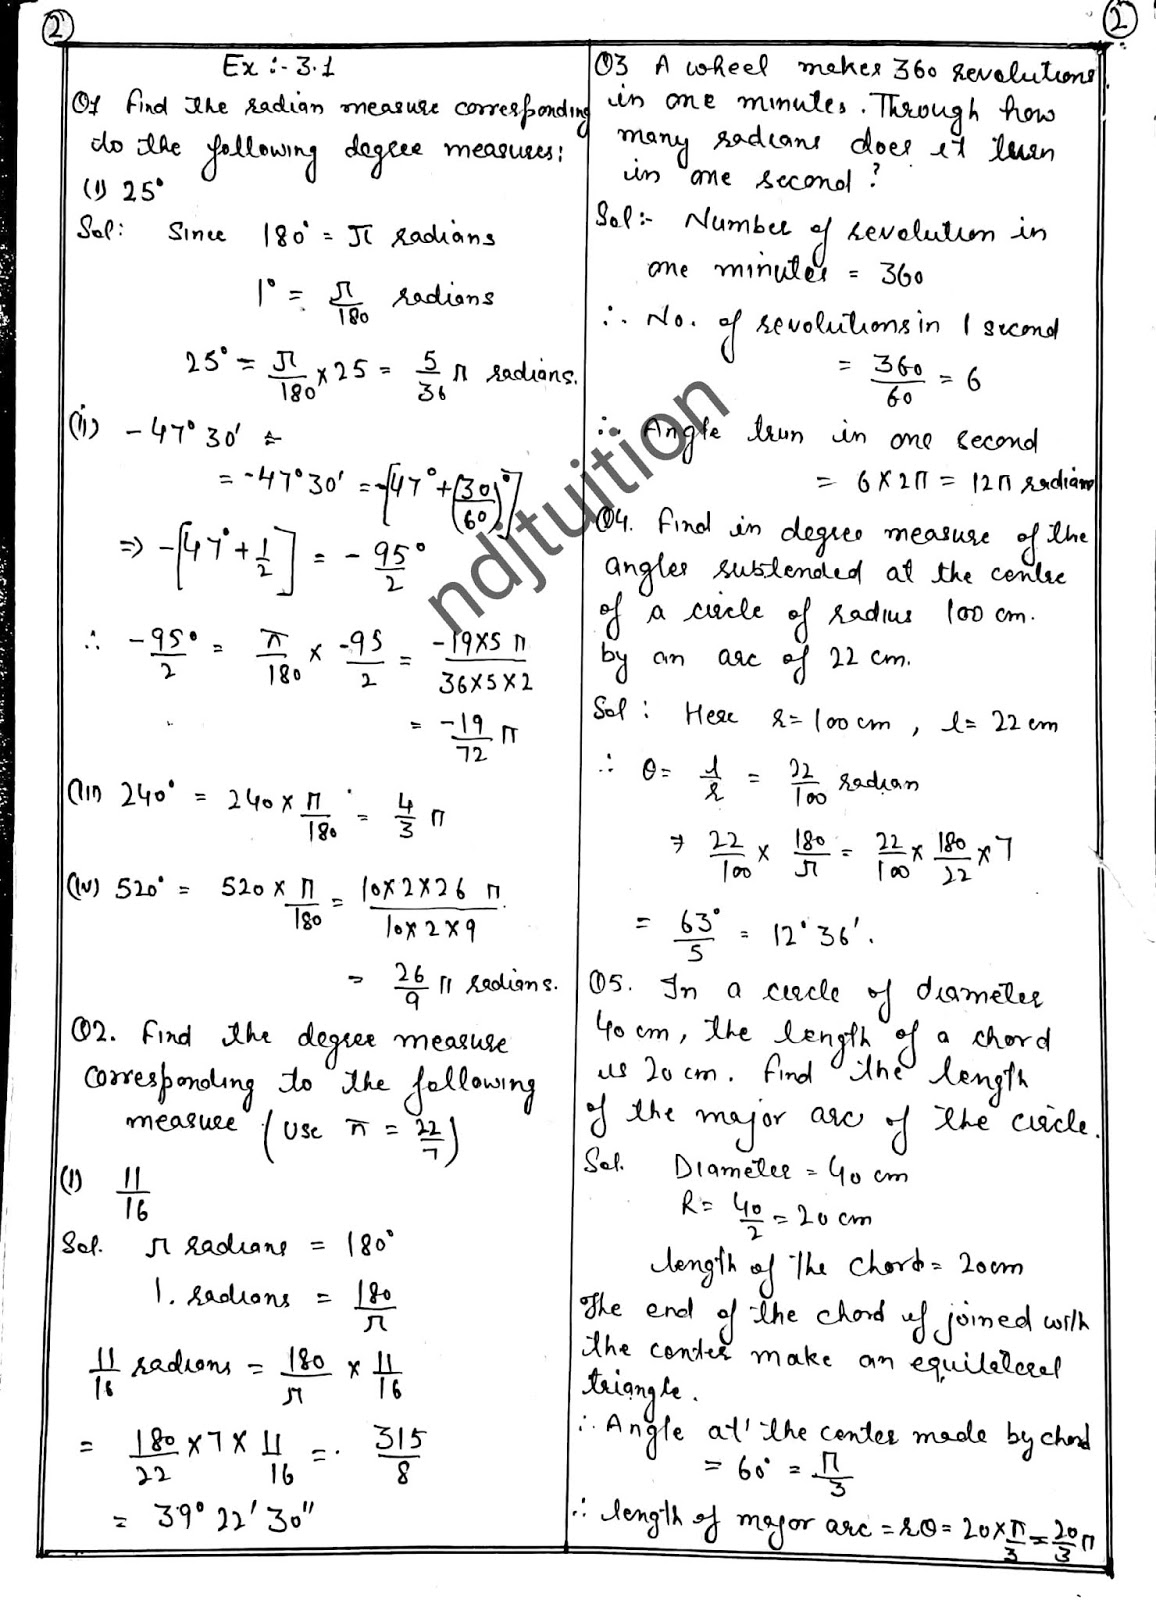 2
2
Ex :- 3.1
Q1 Find the radian measure corresponding
to the following degree measures:
(i) 25°
Sol: Since 180° = π radians
1° = π/180 radians
25° = π/180 × 25 = 5/36 π radians.
(ii) - 47° 30' =
= -47° 30' = -[47° + (30/60)°]
⇒ -[47° + 1/2] = - 95°/2
∴ -95°/2 = π/180 × -95/2 = -19×5 π/36×5×2
= -19/72 π
(iii) 240° = 240 × π/180 = 4/3 π
(iv) 520° = 520 × π/180 = 10×2×26 π/10×2×9
= 26/9 π radians.
Q2. Find the degree measure
corresponding to the following
measure (Use π = 22/7)
(i) 11/16
Sol. π radians = 180°
1. radians = 180/π
11/16 radians = 180/π × 11/16
= 180/22 × 7 × 11/16 = 315/8
= 39° 22' 30"
Q3 A wheel makes 360 revolutions
in one minutes. Through how
many radians does it turn
in one second?
Sol:- Number of revolution in
one minutes = 360
∴ No. of revolutions in 1 second
= 360/60 = 6
∴ Angle trun in one second
= 6×2π = 12π radian
ndjtuition
Q4. Find in degree measure of the
angles subtended at the centre
of a circle of radius 100 cm.
by an arc of 22 cm.
Sol : Here r = 100 cm , l = 22 cm
∴ θ = l/r = 22/100 radian
⇒ 22/100 × 180/π = 22/100 × 180/22 × 7
= 63°/5 = 12° 36'.
Q5. In a circle of diameter
40 cm, the length of a chord
is 20 cm. Find the length
of the major arc of the circle.
Sol. Diameter = 40 cm
R = 40/2 = 20 cm
length of the chord = 20cm
The end of the chord if joined with
the center make an equilateral
triangle.
∴ Angle at the center made by chord
= 60° = π/3
∴ length of major arc = rθ = 20×π/3 = 20/3 π